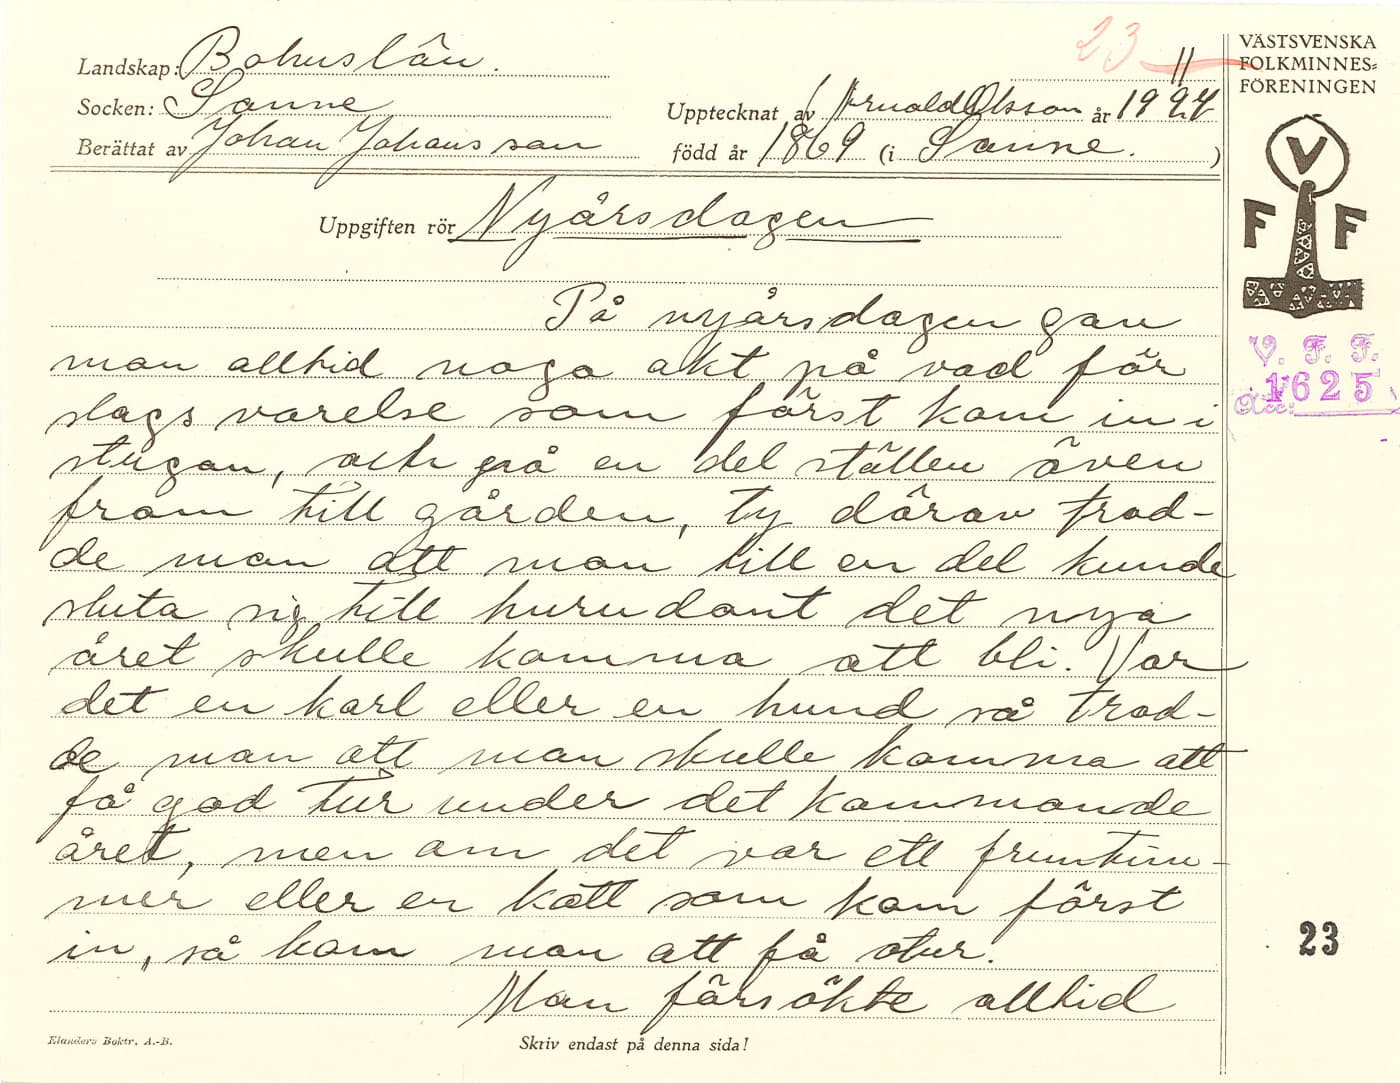 23
11
Landskap: Bohuslän.
Socken: Sanne
Upptecknat av Arnold Olsson år 1927
Berättat av Johan Johansson
född år 1869 (i Sanne. )
Uppgiften rör Nyårsdagen
På nyårsdagen gav
man alltid noga akt på vad för
slags varelse som först kom in i
stugan, och på en del ställen även
fram till gården, ty därav trod-
de man att man till en del kunde
sluta sig till hurudant det nya
året skulle komma att bli. Var
det en karl eller en hund så trod-
de man att man skulle komma att
få god tur under det kommande
året, men om det var ett fruntim-
mer eller en katt som kom först
in, så kom man att få otur.
Man försökte alltid
Elanders Boktr. A.-B.
Skriv endast på denna sida!
VÄSTSVENSKA
FOLKMINNES=
FÖRENINGEN
V
F F
V. F. F.
1625
Acc:
23